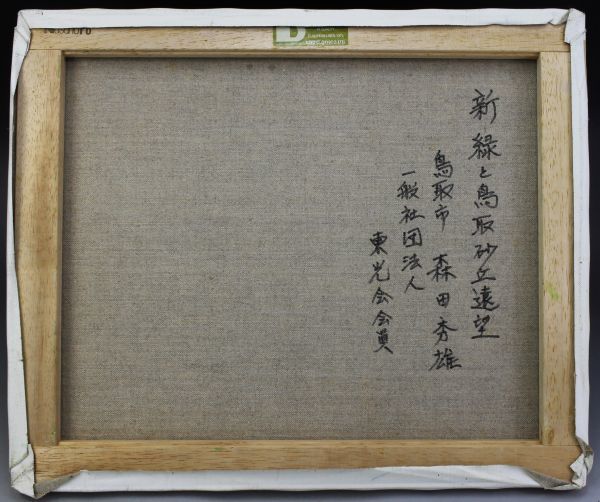 新緑と鳥取砂丘遠望
鳥取市 森田秀雄
一般社団法人
東光会会員